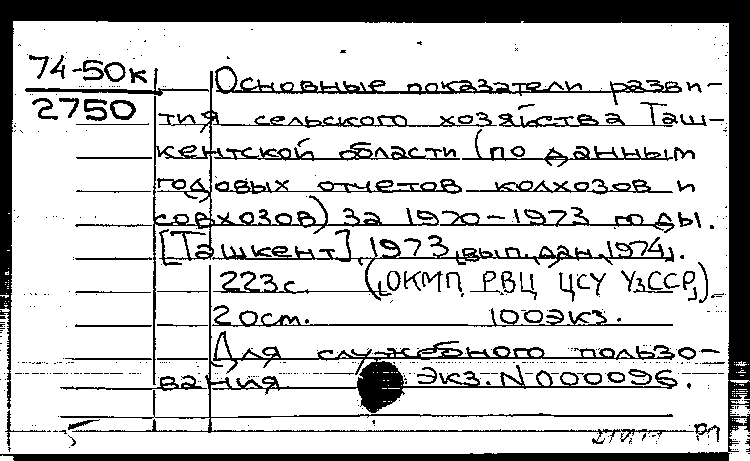 74-50к
2750
Основные показатели разви-
тия сельского хозяйства Таш-
кентской области (по данным
годовых отчетов колхозов и
совхозов) за 1970-1973 годы.
[Ташкент], 1973, [вып. дан. 1974].
223с. ([ОКМП РВЦ ЦСУ УзССР])
20см. 100экз.
Для служебного пользо-
вания Экз. N000096.
РП